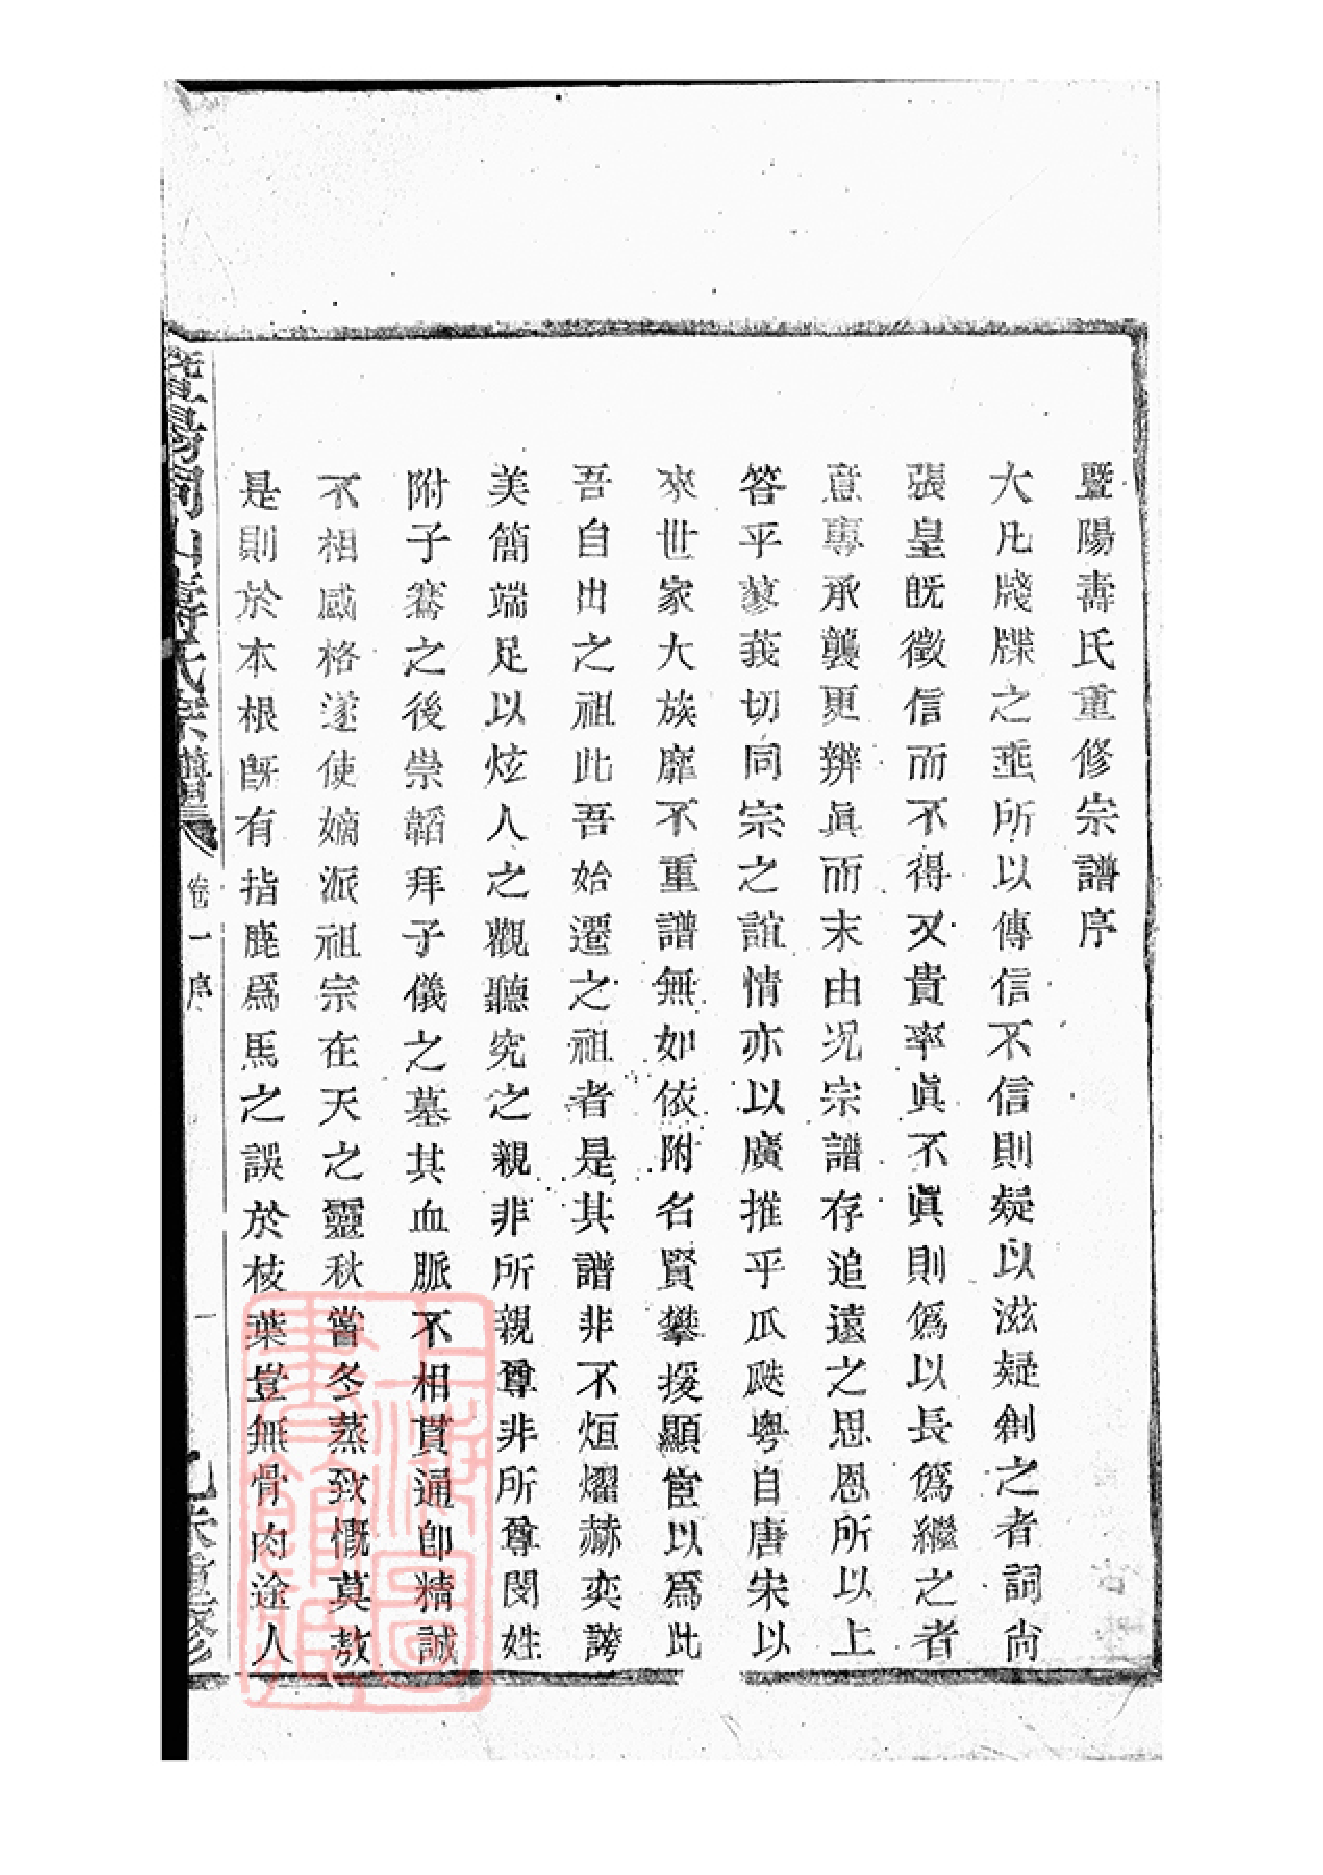 暨陽壽氏重修宗譜序
大凡牋牒之垂所以傳信不信則疑以滋疑創之者詞尙
張皇旣徵信而不得又貴率眞不眞則僞以長僞繼之者
意專承襲更辦眞而末由況宗譜存追遠之思恩所以上
答乎蓼莪切同宗之誼情亦以廣推乎瓜瓞粤自唐宋以
來世家大族靡不重譜無如依附名賢攀援顯宦以爲此
吾自出之祖此吾始遷之祖者是其譜非不烜燿赫奕誇
美簡端足以炫人之觀聽究之親非所親尊非所尊閔姓
附子騫之後崇韜拜子儀之墓其血脈不相貫通卽精誠
不相感格遂使嫡派祖宗在天之靈秋嘗冬蒸致慨莫敖
是則於本根旣有指鹿爲馬之誤於枝葉豈無骨肉途人
暨陽開山壽氏宗譜 卷一 序 一 乙未重修
上海圖書館藏